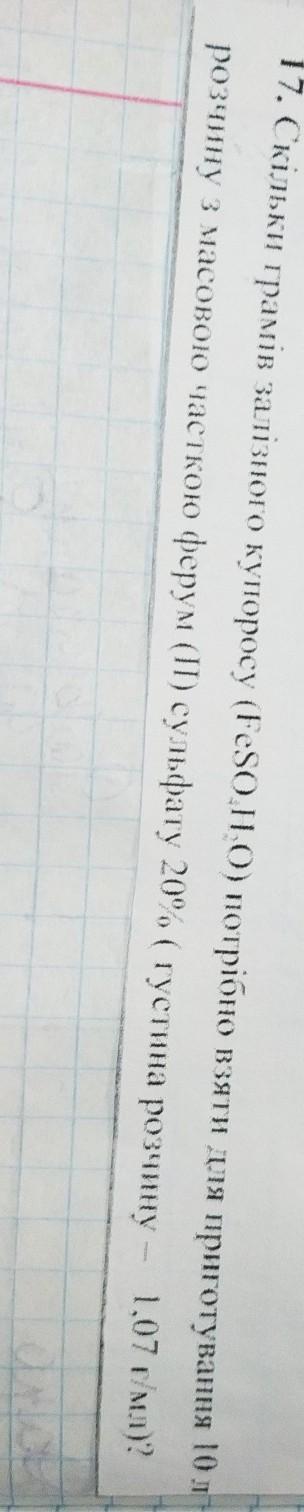 17. Скільки грамів залізного купоросу (FeSO₄H₂O) потрібно взяти для приготування 10 л
розчину з масовою часткою ферум (ІІ) сульфату 20% ( густина розчину – 1,07 г/мл)?